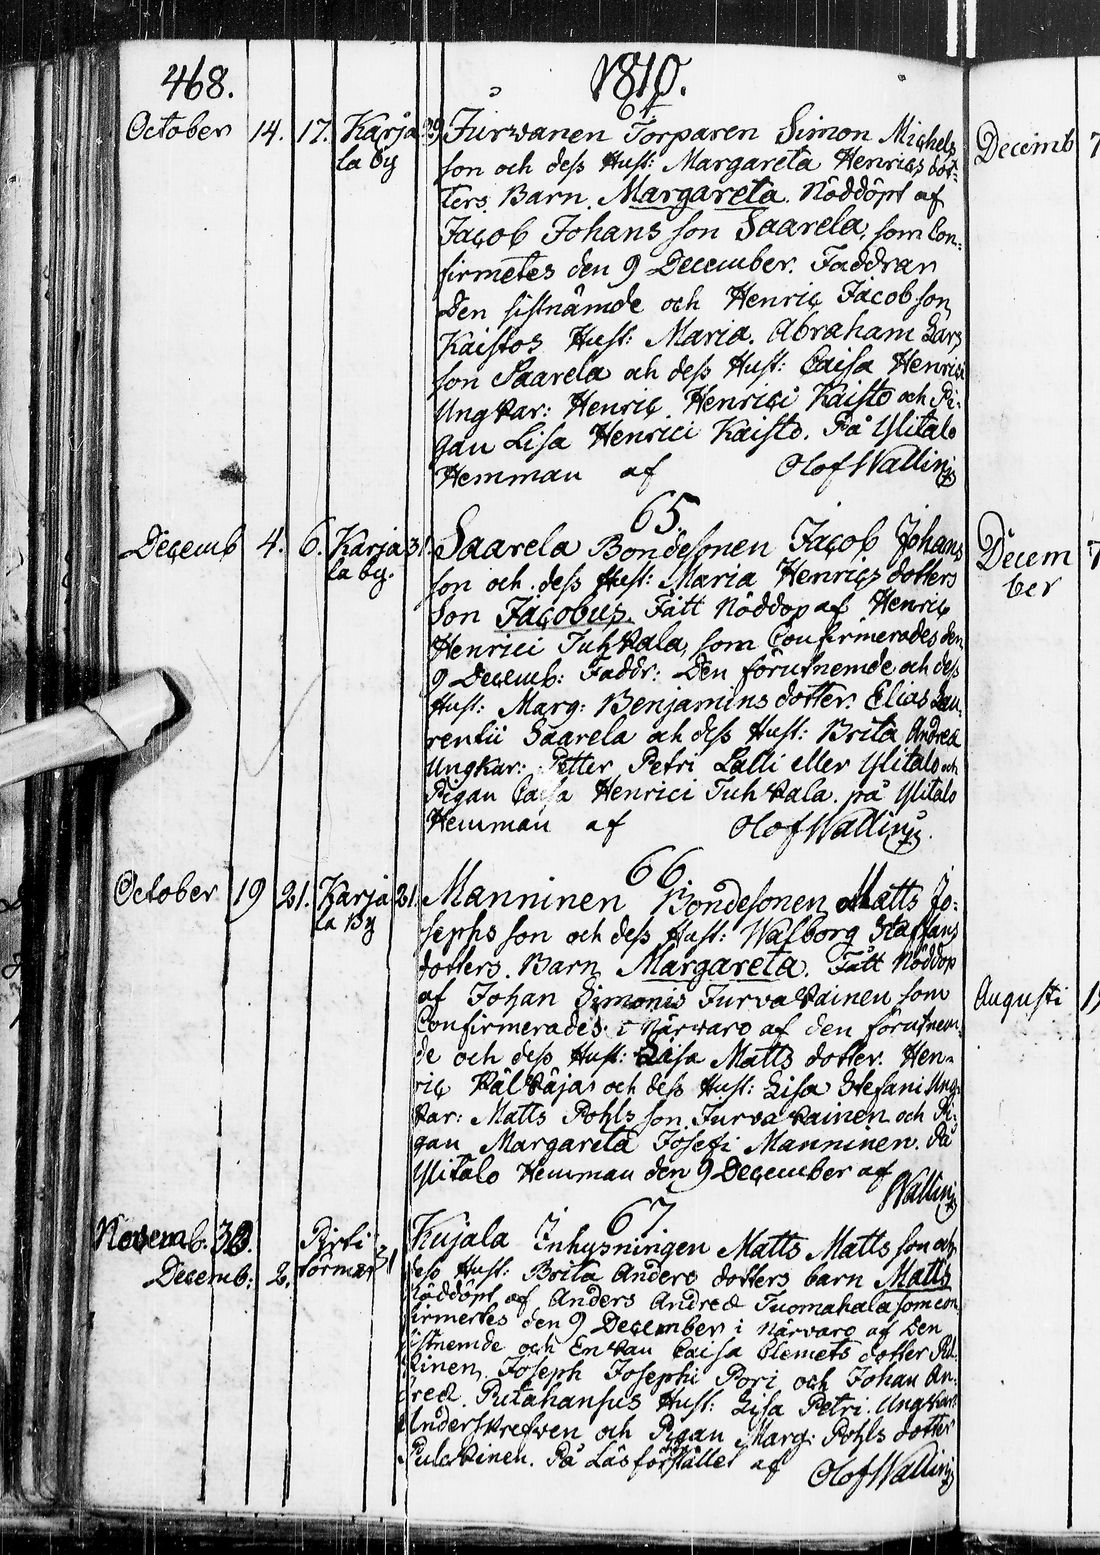 468.
1810.
64
October 14. 17. Karja 39 Jurvanen Torparen Simon Michels
la by son och dess Hust: Margareta Henrics dot-
ters. Barn. Margareta. Nöddöpt af
Jacob Johans son Saarela, som Con-
firmetes den 9 December. Faddrar
Den sistnämde och Henric Jacobson
Kaistos Hust: Maria. Abraham Lars
son Saarela och dess Hust: Caisa Henrici
Ungkar: Henric Henrici Kaisto och Pi-
gan Lisa Henrici Kaisto. På Ylitalo
Hemman af Olof Wallin
65
Decemb 4. 6. Karja 31. Saarela Bondesonen Jacob Johans
la by. son och dess Hust: Maria Henrics dotters
Son Jacobus. Fått Nöddop af Henric
Henrici Tuhkala, som Confirmerades den
9 Decemb: Faddr: Den förutnemde och dess
Hust: Marg: Benjamins dotter. Elias Lau-
rentii Saarela och dess Hust: Brita Andreæ
Ungkar: Petter Petri Lalli eller Ylitalo och
Pigan Caisa Henrici Tuhkala. på Ylitalo
Hemman af Olof Wallin
66
October 19 21. Karja 21. Manninen Bondesonen Matts Jo-
la By sephs son och dess Hust: Walborg Staffans
dotters. Barn Margareta. Fått Nöddop
af Johan Simonis Jurvakainen som
Confirmerades i Närvaro af den förutnem-
de och dess Hust: Lisa Matts dotter. Hen-
ric Kälkäjas och dess Hust: Lisa Stefani Ung-
kar: Matts Pohls son Jurvakainen och Pi-
gan Margareta Josefi Manninen. På
Ylitalo Hemman den 9 December af
Wallin
67.
Novemb. 30. Pirti Kujala Inhysningen Matts Matts son och
Decemb: 2. 31 dess Hust: Brita Anders dotters barn Matts
Nöddöpt af Anders Andreæ Tuomahala som con-
firmertes den 9 December i Närvaro af Den
sistnemde och Enkan Caisa Clemets dotter
Joseph Josephi Pori och Johan An-
dreæ Putahansus Hust: Lisa Petri. Ungkar:
Underskrefven och Pigan Marg: Pohls dotter
Pulckinen. På Läsförhället af Olof Wallin
Decemb 7
Decem 7
ber
Augusti